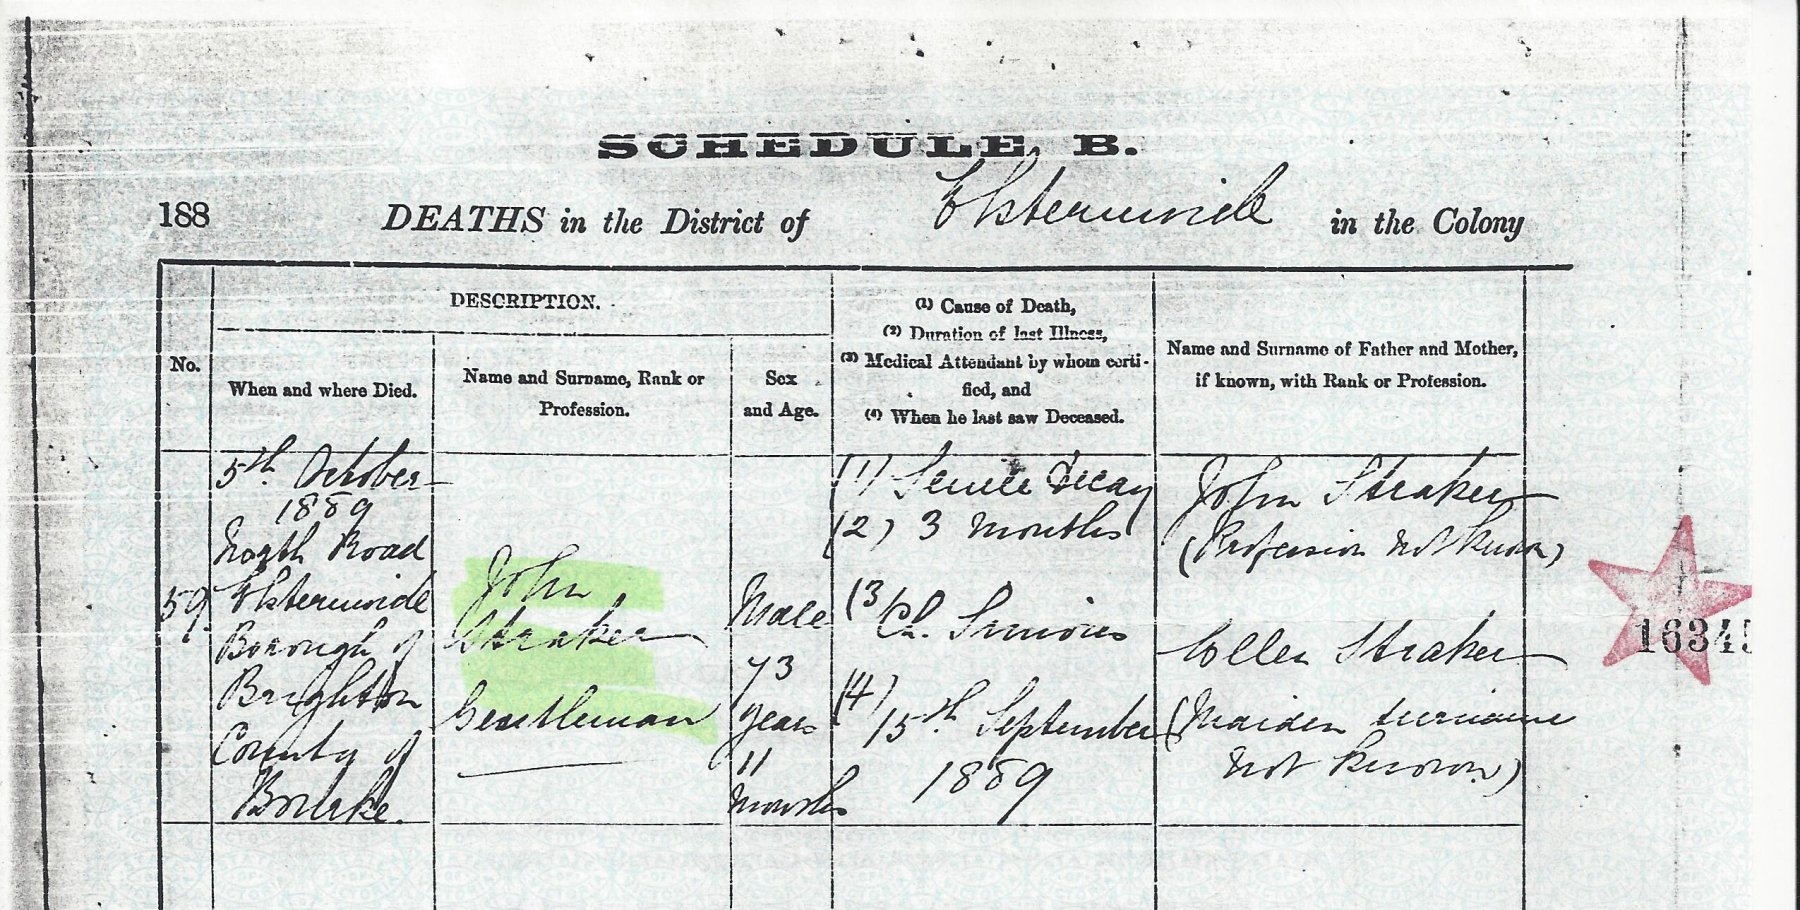 SCHEDULE B.
188 DEATHS in the District of Elsternwick in the Colony
No.
DESCRIPTION.
When and where Died.
Name and Surname, Rank or
Profession.
Sex
and Age.
(1) Cause of Death,
(2) Duration of last Illness,
(3) Medical Attendant by whom certi-
fied, and
(4) When he last saw Deceased.
Name and Surname of Father and Mother,
if known, with Rank or Profession.
59
5th October
1889
North Road
Elsternwick
Borough of
Brighton
County of
Bourke.
John
Straker
Gentleman
Male
73
years
11
months
(1) Senile Decay
(2) 3 months
(3)
Ch.
(4)
15th September
1889
John Straker
(Profession not known)
Ellen Straker
(Maiden surname
not known)
16345